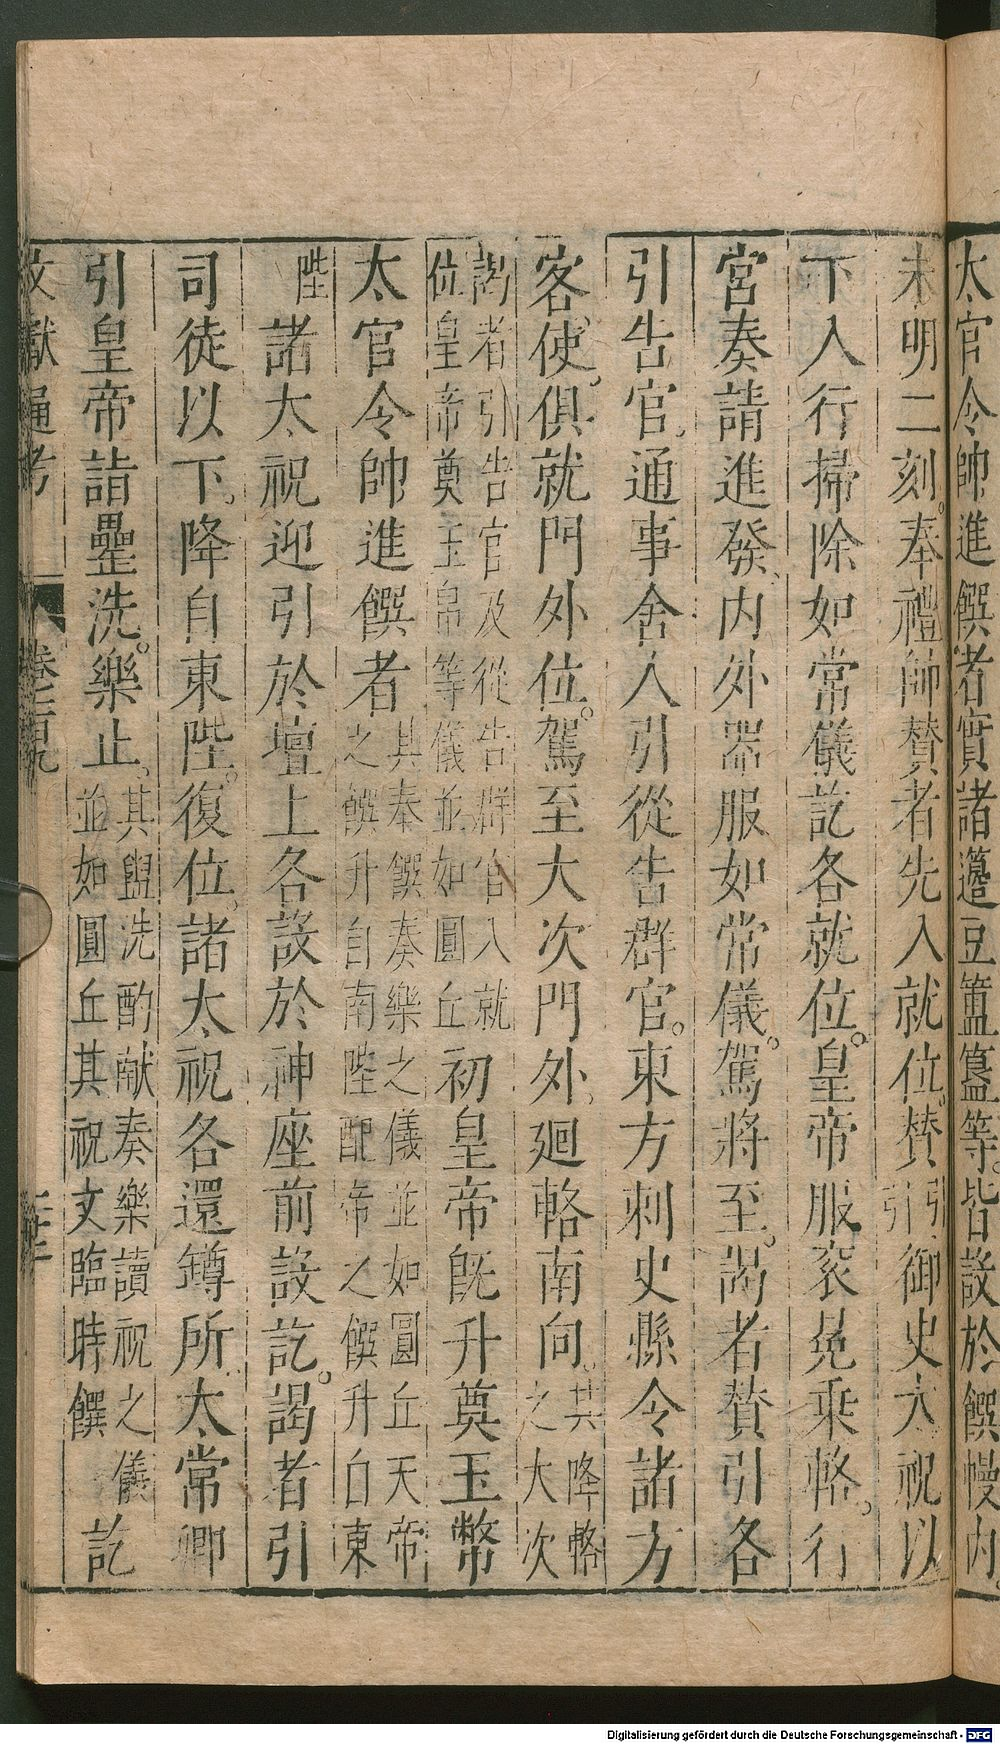 太官令帥進饌者實諸籩豆簠簋等皆設於饌幔内。
未明二刻。奉禮帥贊者先入就位。贊引引御史太祝以
下入行掃除如常儀訖各就位。皇帝服衮冕乘輅。行
宮奏請進發、内外器服如常儀。駕將至。謁者贊引各
引告官。通事舍人引從告群官。東方刺史縣令諸方
客使。俱就門外位。駕至大次門外、廻輅南向。其降輅之大次
謁者引告官及從告群官入就位皇帝奠玉帛等儀並如圓丘初皇帝旣升奠玉幣
太官令帥進饌者其奉饌奏樂之儀並如圓丘天帝之饌升自南陛配帝之饌升自東
陛諸太祝迎引於壇上各設於神座前設訖。謁者引
司徒以下。降自東陛。復位。諸太祝各還罇所太常卿
引皇帝詣罍洗。樂止。其盥洗酌献奏樂讀祝之儀並如圓丘其祝文臨時饌訖
文獻通考 卷一百九